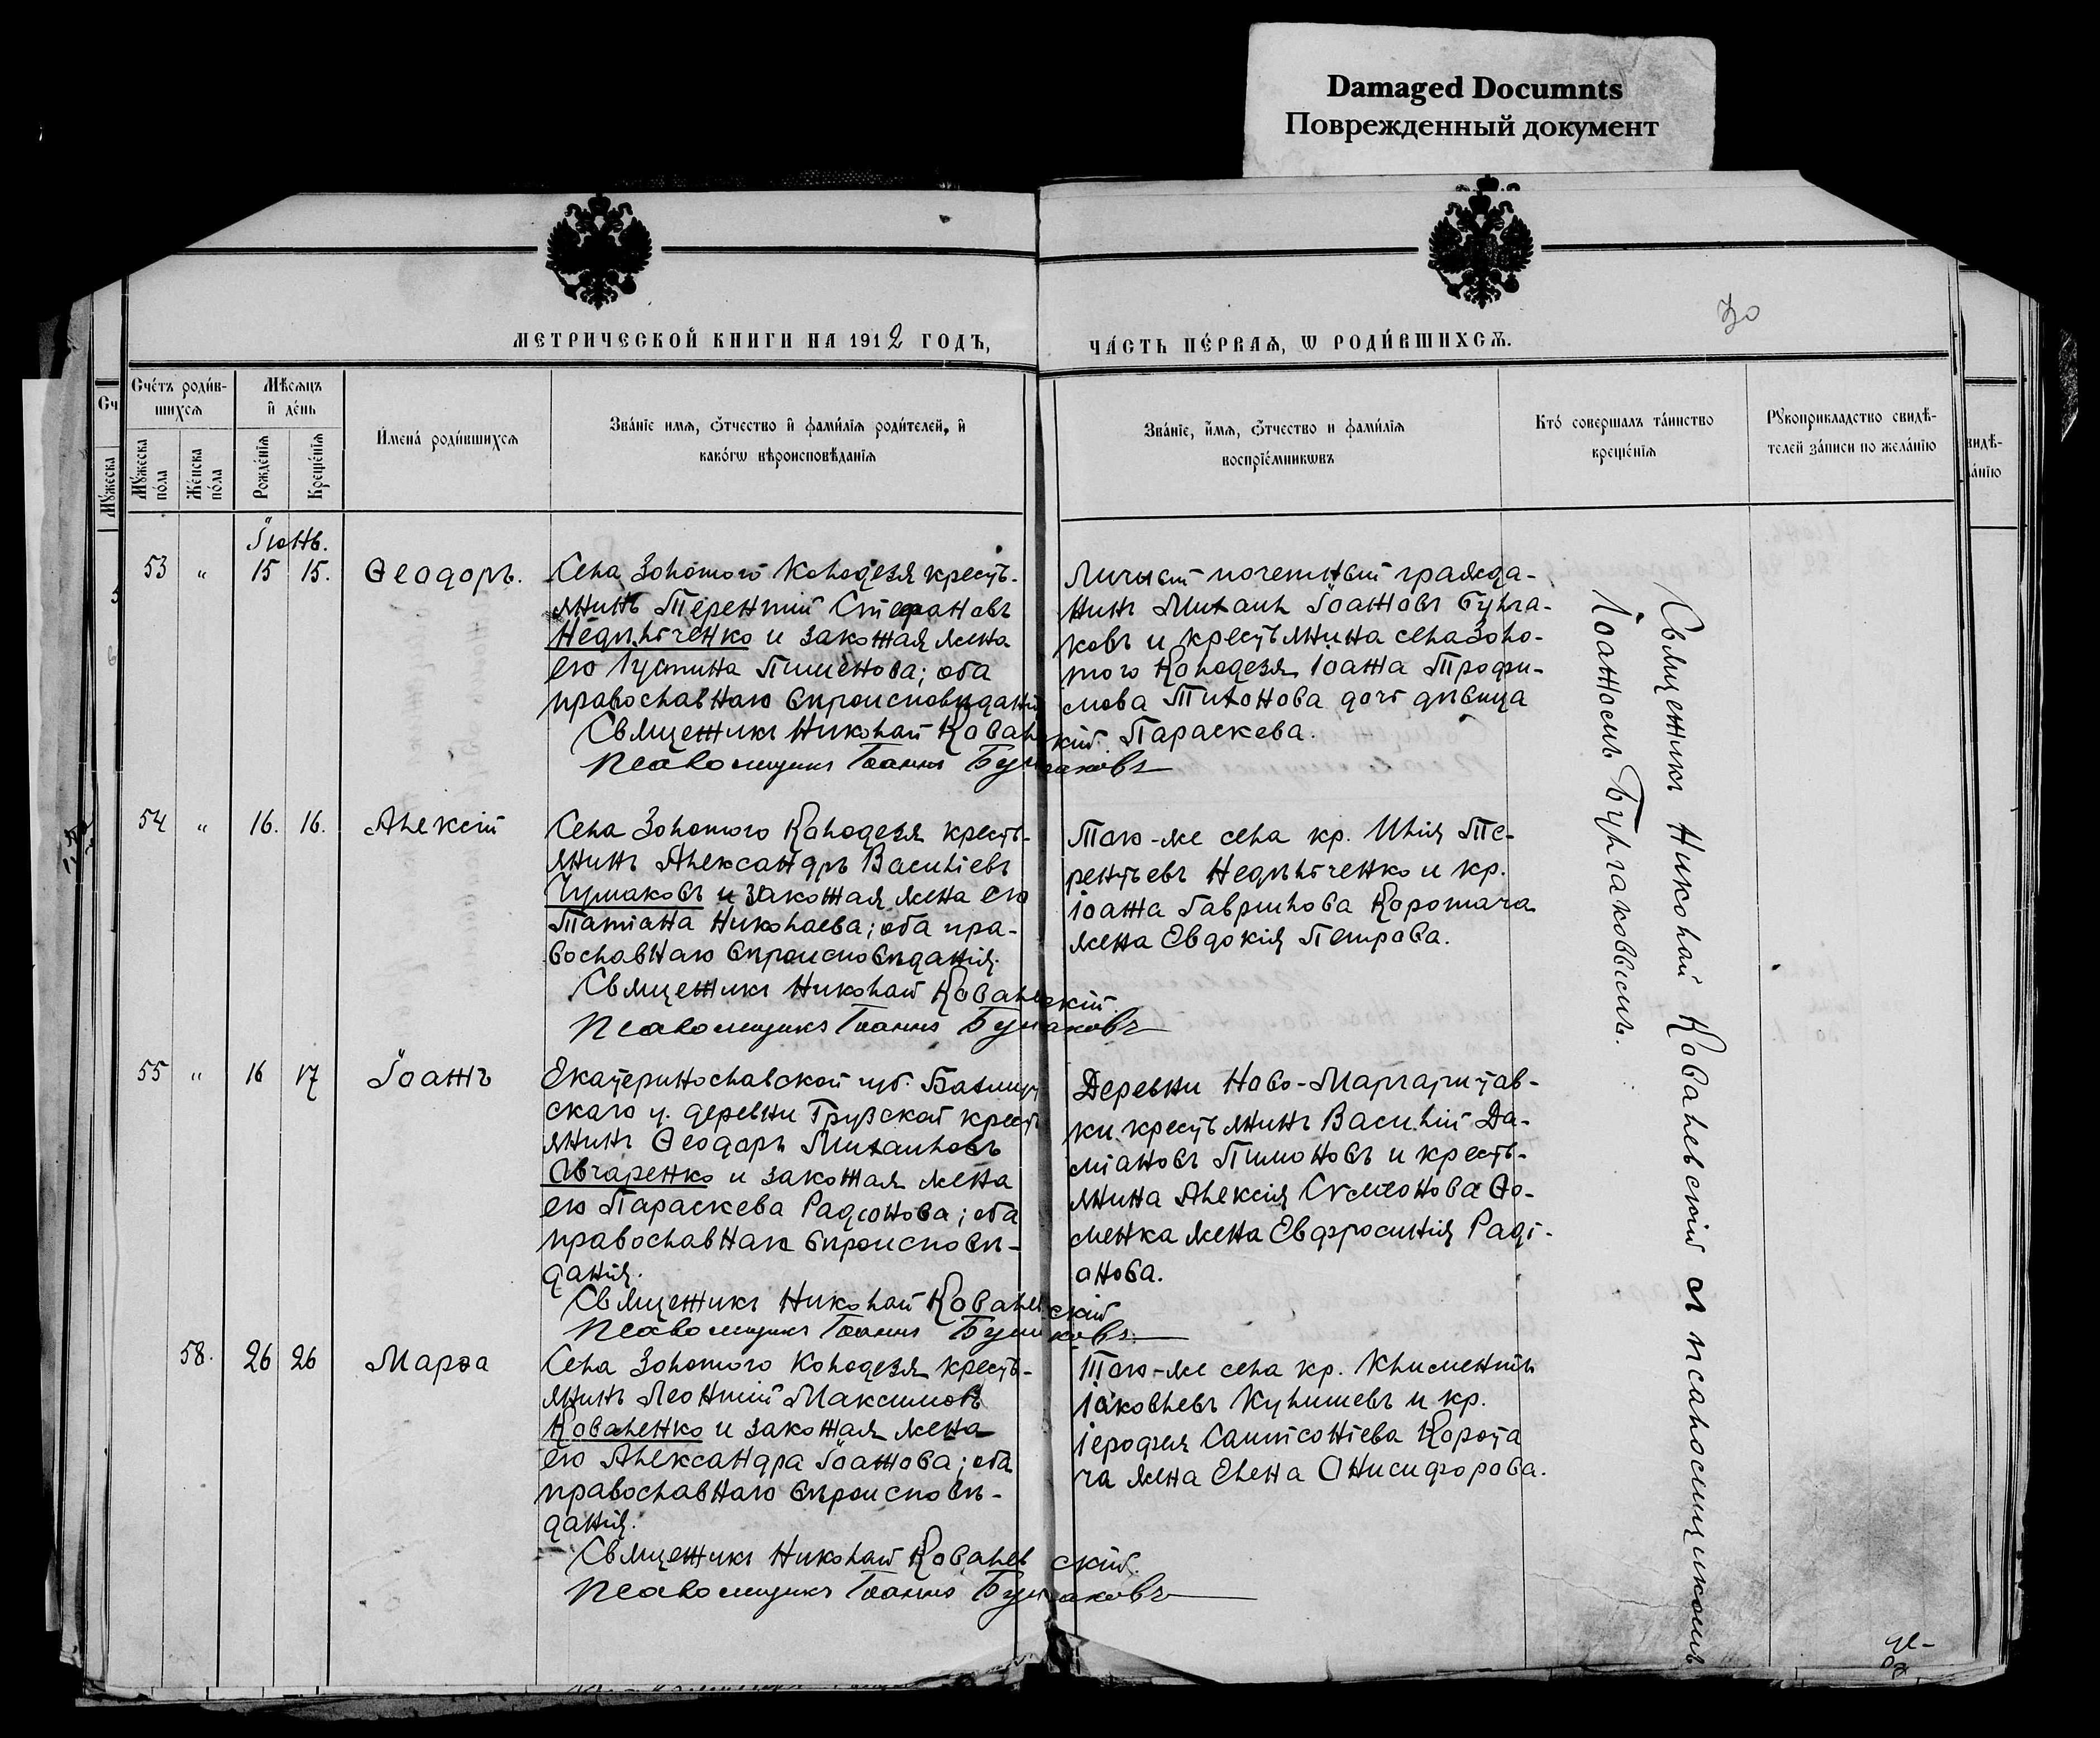 Damaged Documnts
Поврежденный документ
МЕТРИЧЕСКОЙ КНИГИ НА 1912 ГОДЪ,
ЧА́СТЬ ПЕ́РВАѦ, Ѡ РОДИ́ВШИХСѦ.
Сче́тъ роди́в-
шихсѧ
Мѣсѧцъ
и҆ де́нь
Му́жеска по́ла
Же́нска по́ла
Рожде́нїѧ
Креще́нїѧ
И҆мена́ роди́вшихсѧ
Зва́нїе имѧ, ѻ҆́тчество и҆ фами́лїѧ роди́телей, и҆
како́гѡ вѣроисповѣ́данїѧ
Зва́нїе, и҆́мѧ, ѻ҆́тчество и фами́лїѧ
воспрїе́мникѡвъ
Кто́ соверша́лъ та́инство
креще́нїѧ
Рꙋкоприкладство свидѣ́-
телей за́писи по жела́нїю
Іюнь.
53 „ 15 15. Ѳеодоръ.
Села Золотого Колодезя кресть-
янинъ Терентій Стефановъ
Недѣльченко и законная жена
его Іустина Пименова; оба
православнаго вѣроисповѣданія
Священникъ Николай Ковалевскій.
Псаломщикъ Іоаннъ Булгаковъ
Личный почетный гражда-
нинъ Михаилъ Іоанновъ Булга-
ковъ и крестьянина села Золо-
того Колодезя Іоанна Трофи-
мова Тихонова дочь дѣвица
Параскева.
54 „ 16. 16. Алексій
Села Золотого Колодезя кресть-
янинъ Александръ Василіевъ
Чумаковъ и законная жена его
Татіана Николаева; оба пра-
вославнаго вѣроисповѣданія.
Священникъ Николай Ковалевскій.
Псаломщикъ Іоаннъ Булгаковъ
Того-же села кр. Илія Те-
рентьевъ Недѣльченко и кр.
Іоанна Гавриилова Коротача
жена Евдокія Петрова.
55 „ 16 17 Іоаннъ
Екатеринославской губ. Бахмут
скаго у. деревни Грузской кресть
янинъ Ѳеодоръ Михаиловъ
Овчаренко и законная жена
его Параскева Радіонова; оба
православнаго вѣроисповѣ-
данія.
Священникъ Николай Ковалевскій
Псаломщикъ Іоаннъ Булгаковъ.
Деревни Ново-Маргаритав-
ки крестьянинъ Василій Да-
міановъ Пимоновъ и кресть-
янина Алексія Сѵмеонова Ѳо-
менка жена Евфросинія Раді-
онова.
58. 26 26 Марѳа
Села Золотого Колодезя кресть-
янинъ Леонтій Максимовъ
Коваленко и законная жена
его Александра Іоаннова; оба
православнаго вѣроисповѣ-
данія.
Священникъ Николай Ковалевскій.
Псаломщикъ Іоаннъ Булгаковъ
Того-же села кр. Климентъ
Іаковлевъ Кулишевъ и кр.
Іерофея Сампсоніева Корота
ча жена Елена Онисифорова.
Священникъ Николай Ковалевскій съ псаломщикомъ
Іоанномъ Булгаковымъ.